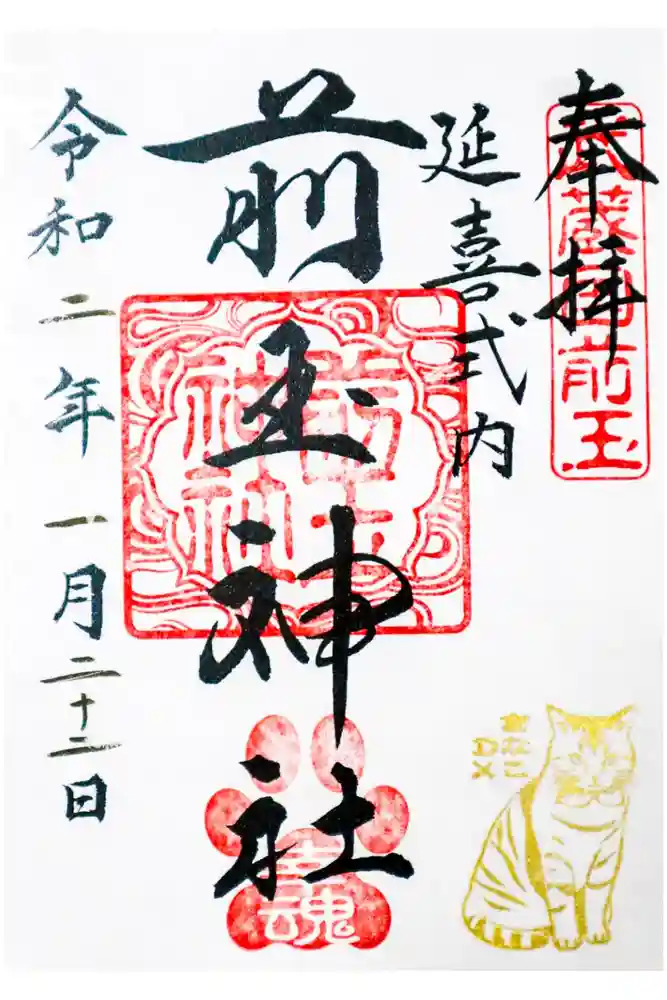 奉拝
蔵 前玉
延喜式内
前玉神社
前玉
神社
幸魂
令和二年一月二十二日
きなこ
DX